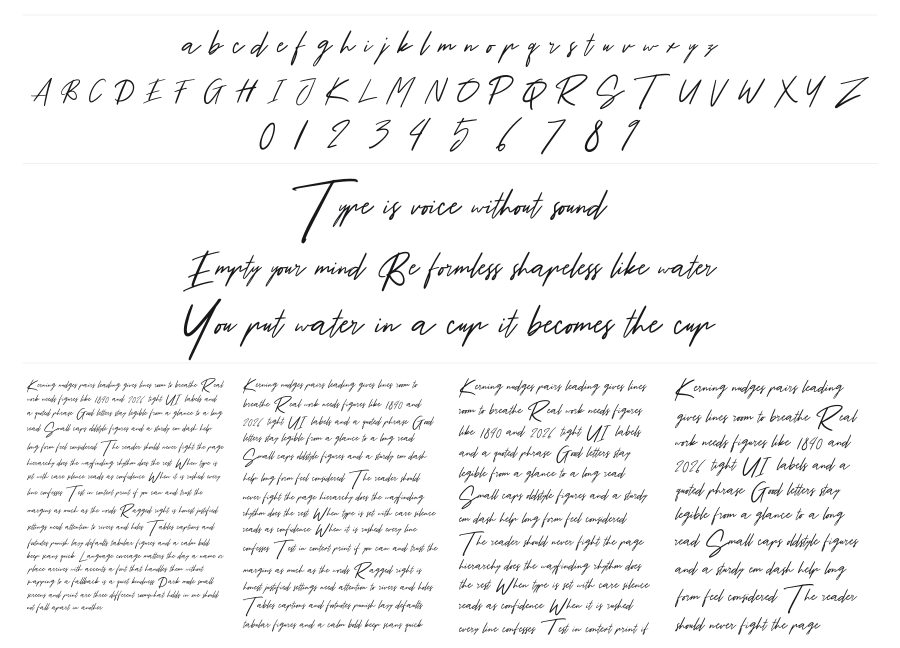 a b c d e f g h i j k l m n o p q r s t u v w x y z
A B C D E F G H I J K L M N O P Q R S T U V W X Y Z
0 1 2 3 4 5 6 7 8 9
Type is voice without sound
Empty your mind Be formless shapeless like water
You put water in a cup it becomes the cup
Kerning nudges pairs leading gives lines room to breathe Real
work needs figures like 1890 and 2026 tight UI labels and
a quoted phrase Good letters stay legible from a glance to a long
read Small caps oldstyle figures and a sturdy em dash help
long form feel considered The reader should never fight the page
hierarchy does the wayfinding rhythm does the rest When type is
set with care silence reads as confidence When it is rushed every
line confesses Test in content print if you can and trust the
margins as much as the words Ragged right is honest justified
settings need attention to rivers and holes Tables captions and
footnotes punish lazy defaults tabular figures and a calm bold
keep scans quick Language coverage matters the day a name or
place arrives with accents a font that handles them without
swapping to a fallback is a quiet kindness Dark mode small
screens and print are three different rooms what holds in one should
not fall apart in another
Kerning nudges pairs leading gives lines room to
breathe Real work needs figures like 1890 and
2026 tight UI labels and a quoted phrase Good
letters stay legible from a glance to a long read
Small caps oldstyle figures and a sturdy em dash
help long form feel considered The reader should
never fight the page hierarchy does the wayfinding
rhythm does the rest When type is set with care silence
reads as confidence When it is rushed every line
confesses Test in content print if you can and trust the
margins as much as the words Ragged right is
honest justified settings need attention to rivers and holes
Tables captions and footnotes punish lazy defaults
tabular figures and a calm bold keep scans quick
Kerning nudges pairs leading gives lines
room to breathe Real work needs figures
like 1890 and 2026 tight UI labels
and a quoted phrase Good letters stay
legible from a glance to a long read
Small caps oldstyle figures and a sturdy
em dash help long form feel considered
The reader should never fight the page
hierarchy does the wayfinding rhythm does
the rest When type is set with care silence
reads as confidence When it is rushed
every line confesses Test in content print if
Kerning nudges pairs leading
gives lines room to breathe Real
work needs figures like 1890 and
2026 tight UI labels and a
quoted phrase Good letters stay
legible from a glance to a long
read Small caps oldstyle figures
and a sturdy em dash help long
form feel considered The reader
should never fight the page